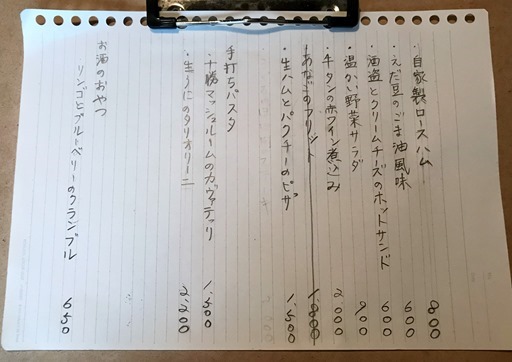 ・自家製ロースハム 800
・えだ豆のごま油風味 600
酒盗とクリームチーズのホットサンド 600
温かい野菜サラダ 900
・牛タンの赤ワイン煮込み 2,000
・あなごのフリット 1,800
・生ハムとパクチーのピザ 1,500
手打ちパスタ
・十勝マッシュルームのカヴァテッリ 1,500
・生うにのタリオリーニ 2,200
お酒のおやつ
リンゴとブルーベリーのクランブル 650